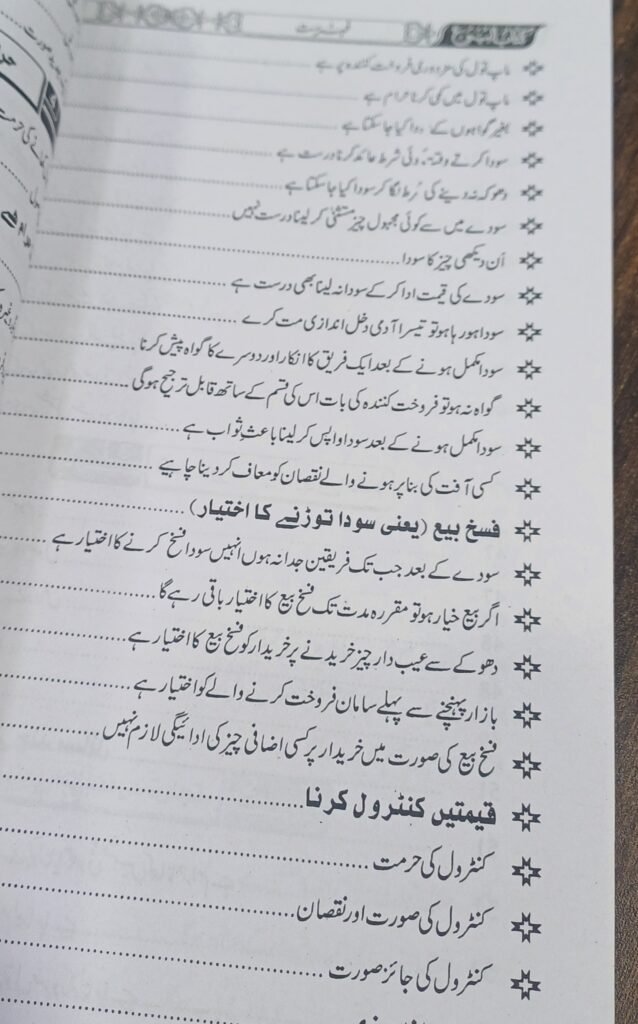 فہرست
ماپ تول کی مزدوری فروخت کنندہ پر ہے
ماپ تول میں کمی کرنا حرام ہے
بغیر گواہوں کے سودا کیا جا سکتا ہے
سودا کرتے وقت کوئی شرط عائد کرنا درست ہے
دھوکہ نہ دینے کی شرط لگا کر سودا کیا جا سکتا ہے
سودے میں سے کوئی مجہول چیز مستثنیٰ کر لینا درست نہیں
اُن دیکھی چیز کا سودا
سودے کی قیمت ادا کر کے سودا نہ لینا بھی درست ہے
سودا ہو رہا ہو تو تیسرا آدمی دخل اندازی مت کرے
سودا مکمل ہونے کے بعد ایک فریق کا انکار اور دوسرے کا گواہ پیش کرنا
گواہ نہ ہو تو فروخت کنندہ کی بات اس کی قسم کے ساتھ قابل ترجیح ہوگی
سودا مکمل ہونے کے بعد سودا واپس کر لینا باعثِ ثواب ہے
کسی آفت کی بنا پر ہونے والے نقصان کو معاف کر دینا چاہیے
فسخ بیع (یعنی سودا توڑنے کا اختیار)
سودے کے بعد جب تک فریقین جدا نہ ہوں انہیں سودا فسخ کرنے کا اختیار ہے
اگر بیع خیار ہو تو مقررہ مدت تک فسخ بیع کا اختیار باقی رہے گا
دھوکے سے عیب دار چیز خریدنے پر خریدار کو فسخ بیع کا اختیار ہے
بازار پہنچنے سے پہلے سامان فروخت کرنے والے کو اختیار ہے
فسخ بیع کی صورت میں خریدار پر کسی اضافی چیز کی ادائیگی لازم نہیں
قیمتیں کنٹرول کرنا
کنٹرول کی حرمت
کنٹرول کی صورت اور نقصان
کنٹرول کی جائز صورت